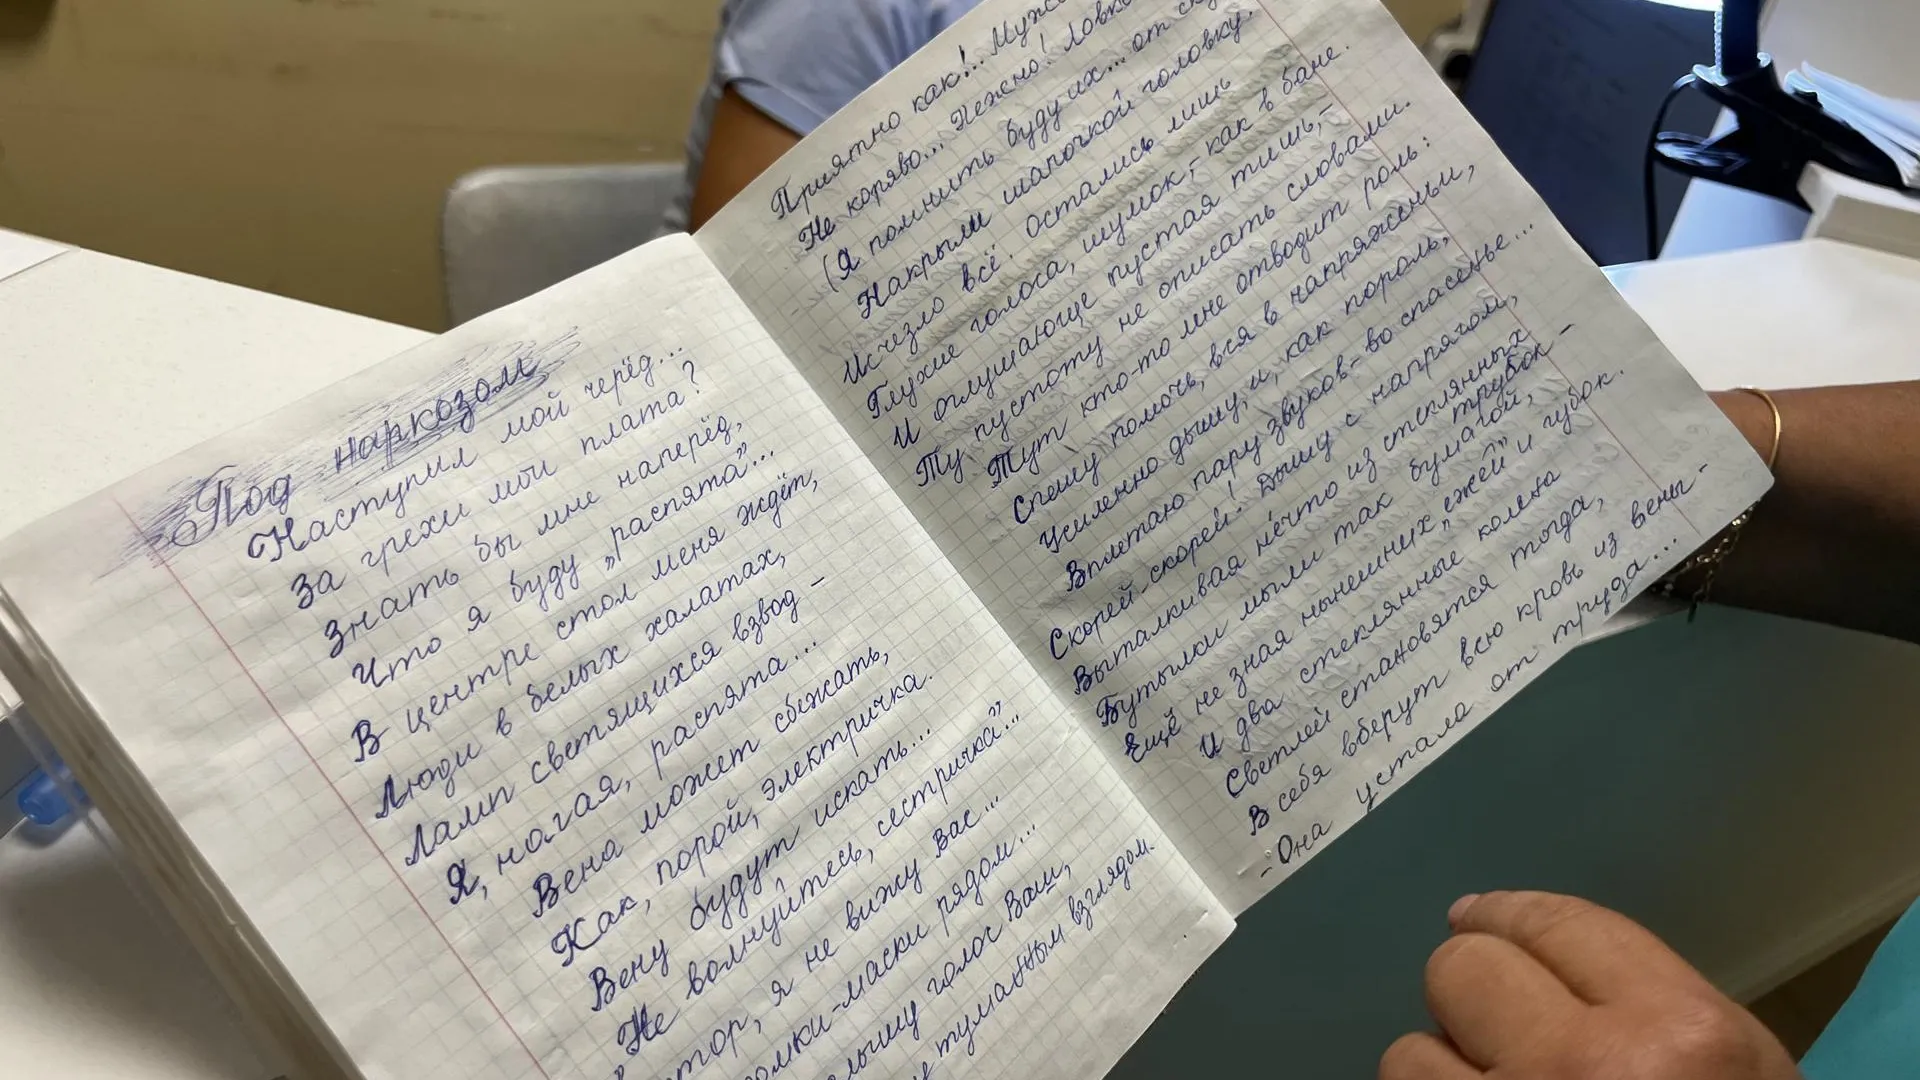 Под наркозом
Наступил мой черёд...
За грехи мои плата?
Знать бы мне наперёд,
Что я буду „распята”...
В центре стол меня ждёт,
Люди в белых халатах,
Ламп светящихся взвод -
Я, нагая, распята...
Вена может сбежать,
Как, порой, электричка.
Вену будут искать...
Не волнуйтесь, сестричка”...
я не вижу Вас...
маски рядом...
голос Ваш,
туманным взглядом.
Приятно как!..
Не коряво... Нежно!
(Я помнить буду их... от
Накрыли шапочкой головку.
Исчезло всё. остались лишь
Глухие голоса, шумок,- как в бане.
И оглушающе пустая тишь,-
Ту пустоту не описать словами.
Тут кто-то мне отводит роль:
Спешу помочь, вся в напряженьи,
Усиленно дышу, и, как пороль,
Вплетаю пару звуков- во спасенье...
Скорей-скорей! Дышу с напрягом,
Выталкивая нечто из стеклянных трубок -
Бутылки мыли так бумагой,
Ещё не зная нынешних „ежей” и губок.
И два стеклянные колена
Светлей становятся тогда,
В себя вберут всю кровь из вены -
- Она устала от труда...